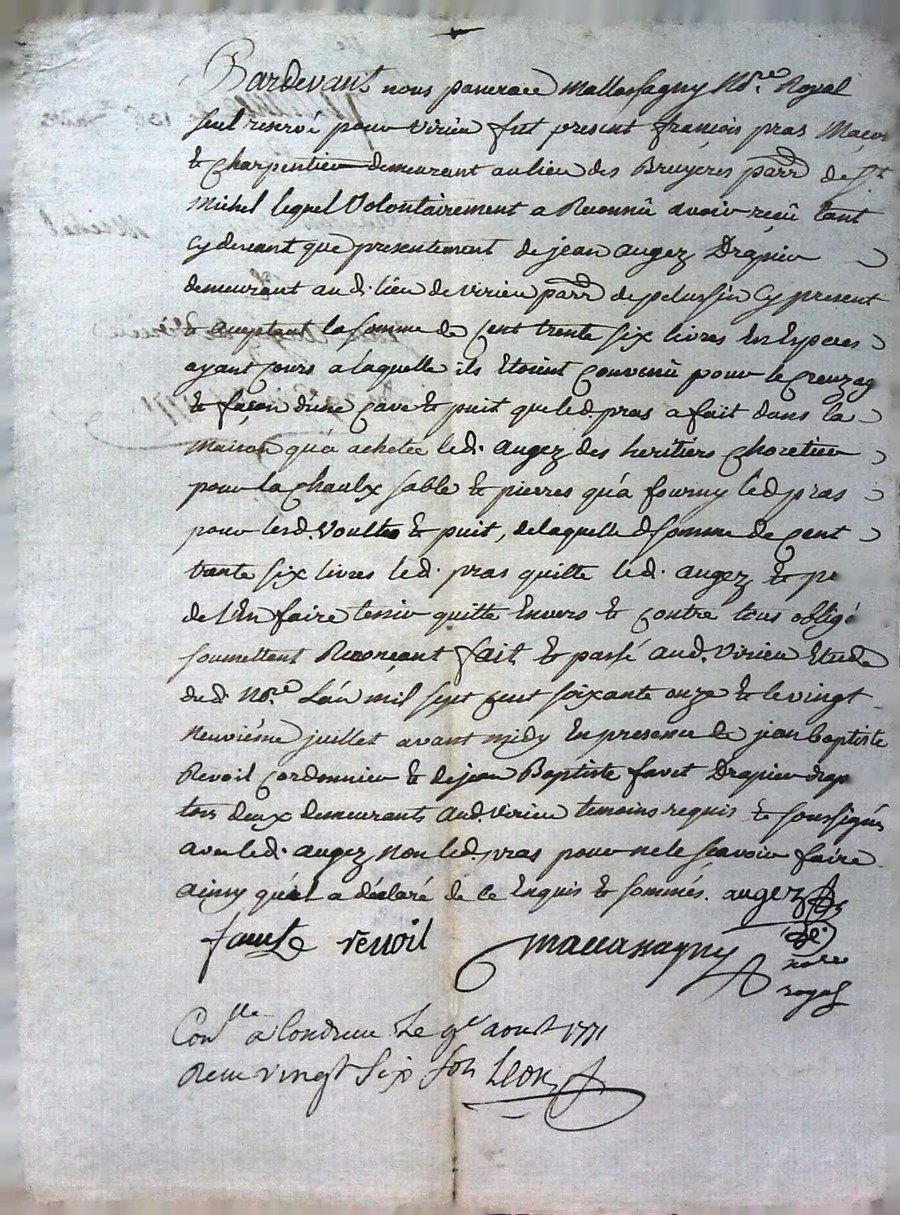 Pardevant nous pancrace Mallassagny No.re Royal
seul reservé pour virieu fut present françois pras Maçon
& charpentier demeurant au lieu des Bruyeres parr. de St
Michel lequel Volontairement a Reconnû avoir reçû tant
cy devant que presentement de jean augez Drapier
demeurant aud. lieu de virieu parr. de pelussin cy present
& acceptant la somme de Cent trente six livres En Especes
ayant cours a laquelle ils Etoient Convenû pour le Creuzag
& façon d'une Cave & puit que led. pras a fait dans la
Maison qu'a achetée led. augez des heritiers Choretier
pour la Chaulx sable & pierres qu'a fourny led. pras
pour lesd. Voultes & puit, de laquelle d. somme de Cent
trente six livres led. pras quitte led. augez & pr
de l'En faire tenir quitte Envers & Contre tous obligé
soumettent Renonçant fait & passé aud. Virieu Etude
dud. No.re L'an mil sept cent soixante onze & le vingt
neuviéme juillet avant midy En presence de jean baptiste
Revoil Cordonnier & de jean Baptiste favet Drapier drap
tous deux demeurants aud. virieu temoins requis & soussignés
avec led. augez Non led. pras pour ne le sçavoir faire
ainsy qu'il a déclaré de ce Enquis & sommés. augez
revoil Mallassagny
No.re
royal
Con.lle a Condrieu Le 9e aoust 1771
Recu vingt Six sols Leon